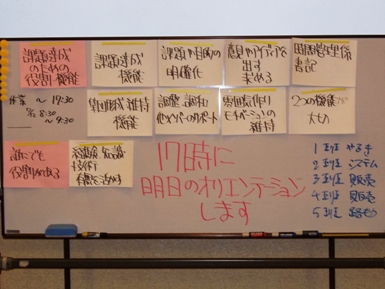 課題達成
のための
役割・機能
課題達成
機能
課題や目的の
明確化
意見やアイディアを
出す
求める
時間管理係
書記
作業 〜19:30
8:30
〜9:30
集団形成・維持
機能
調整・調和
他メンバーのサポート
雰囲気作り
モチベーションの
維持
2つの機能
誰にでも
役割がある
経験・知識
技術
17時に
明日のオリエンテーション
します
1班 やるき
2班 システム
3班 販売
4班 販売
5班